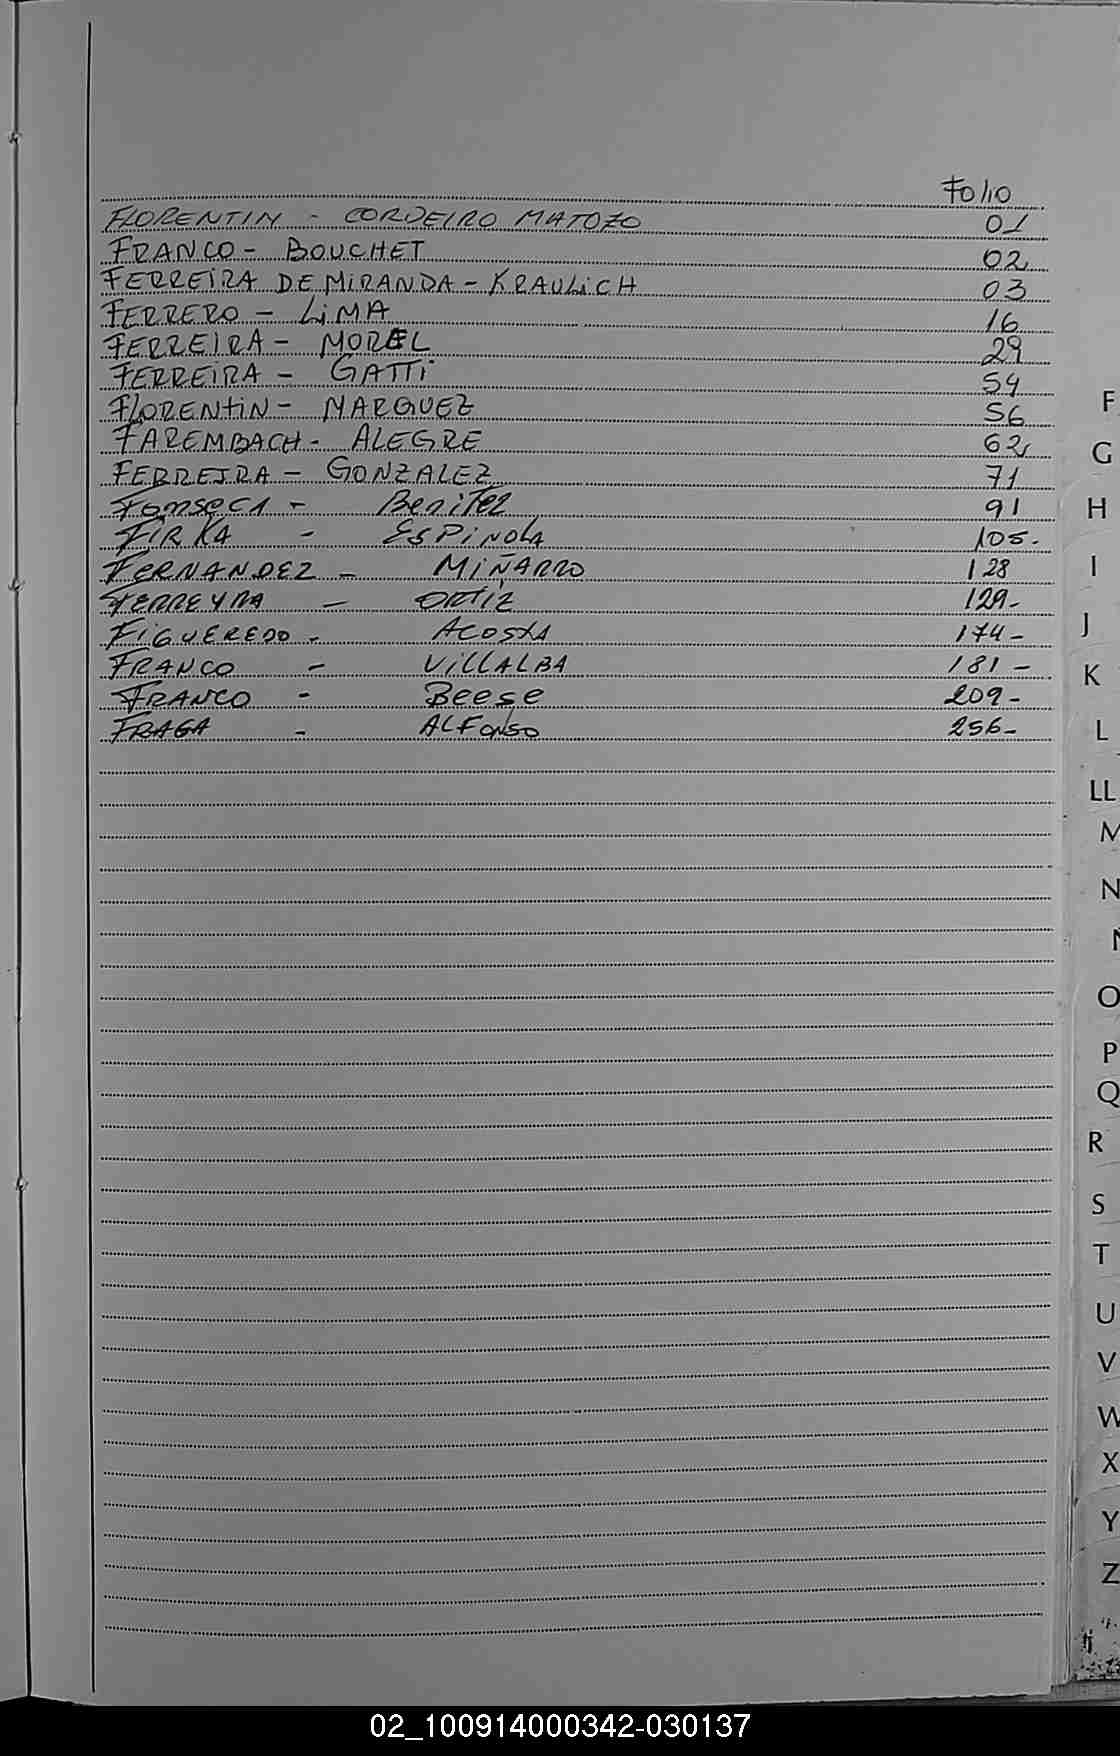 Folio
FLORENTIN - CORDEIRO MATOZO 01
FRANCO - BOUCHET 02
FERREIRA DE MIRANDA - KRAULICH 03
FERRERO - LIMA 16
FERREIRA - MOREL 29
FERREIRA - GATTI 54
FLORENTIN - MARQUEZ 56
FAREMBACH - ALEGRE 62
FERREIRA - GONZALEZ 71
Fonseca - Benitez 91
FIRKA - ESPINOLA 105.
FERNANDEZ - MIÑARRO 128
FERREYRA - ORTIZ 129-
FIGUEREDO - ACOSTA 174-
FRANCO - VILLALBA 181-
FRANCO - Beese 209-
FRAGA - ALFONSO 256-
F
G
H
I
J
K
L
LL
M
N
O
P
Q
R
S
T
U
V
W
X
Y
Z
02_100914000342-030137